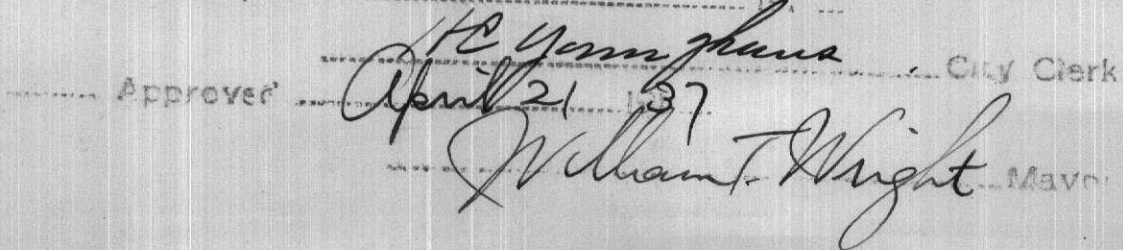 HC Younghans City Clerk
Approved April 21 1937
William T. Wright Mayor